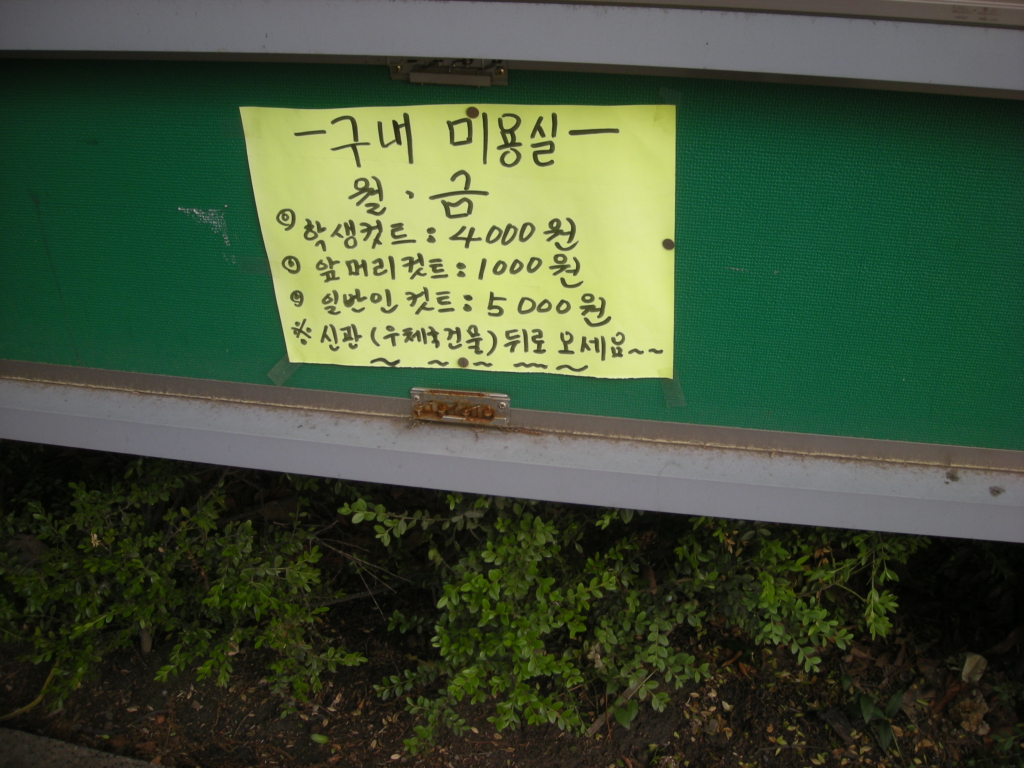 -구내 미용실-
월·금
◎ 학생컷트 : 4000원
◎ 앞머리컷트 : 1000원
◎ 일반인 컷트 : 5000원
※ 신관 (우체국건물) 뒤로 오세요~~